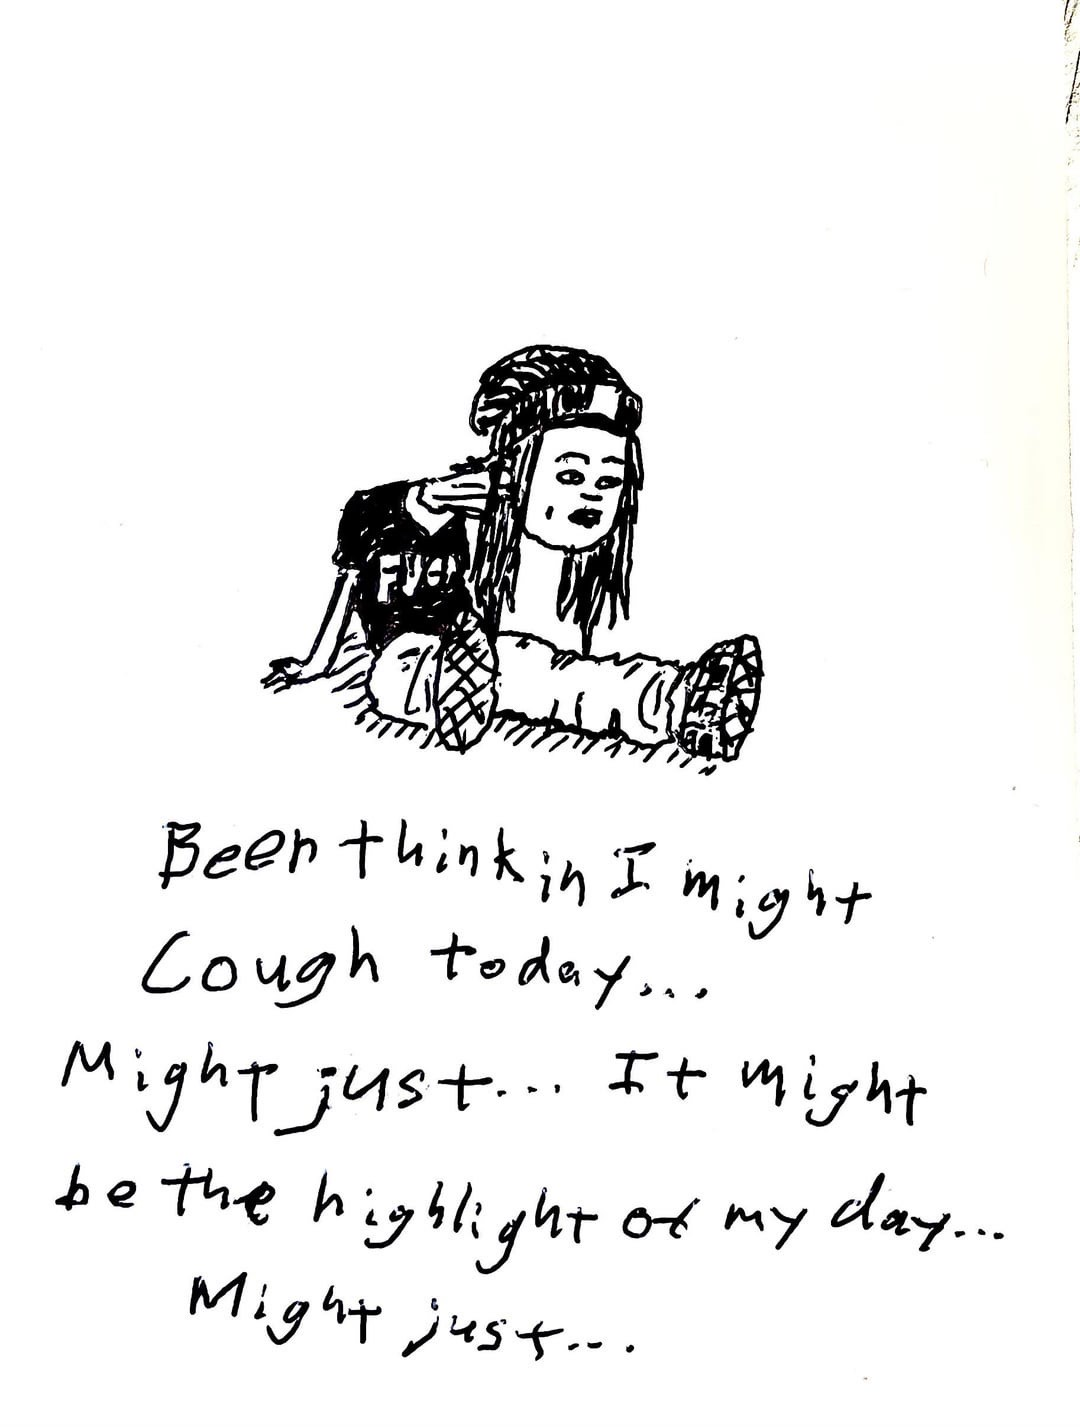 Been thinkin I might
Cough today...
Might just... It might
be the highlight of my day...
Might just...